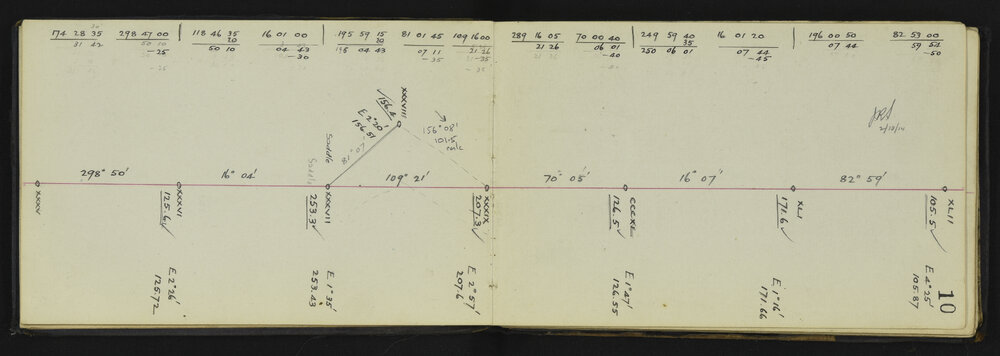 174 28 35
31 42
298 47 00
50 10
-25
118 46 35
20
50 10
16 01 00
04 43
-30
195 59 15
20
195 04 43
81 01 45
07 11
-35
109 16 00
21 26
-35
289 16 05
21 26
70 00 40
06 01
-40
249 59 40
35
250 06 01
16 01 20
07 44
-45
196 00 50
07 44
82 53 00
59 54
-50
XXXVIII
156.4
E 2° 20'
156.51
156° 08'
101.5
calc
Saddle
81° 07'
Saddle
298° 50'
16° 04'
109° 21'
70° 05'
16° 07'
82° 59'
XXXV
XXXVI
125.6
XXXVII
253.3
XXXIX
207.3
126.5
XLI
171.6
XLII
105.5
E 2° 26'
125.72
E 1° 35'
253.43
E 2° 57'
207.6
E 1° 47'
126.55
E 1° 16'
171.66
E 4° 25'
105.87
10